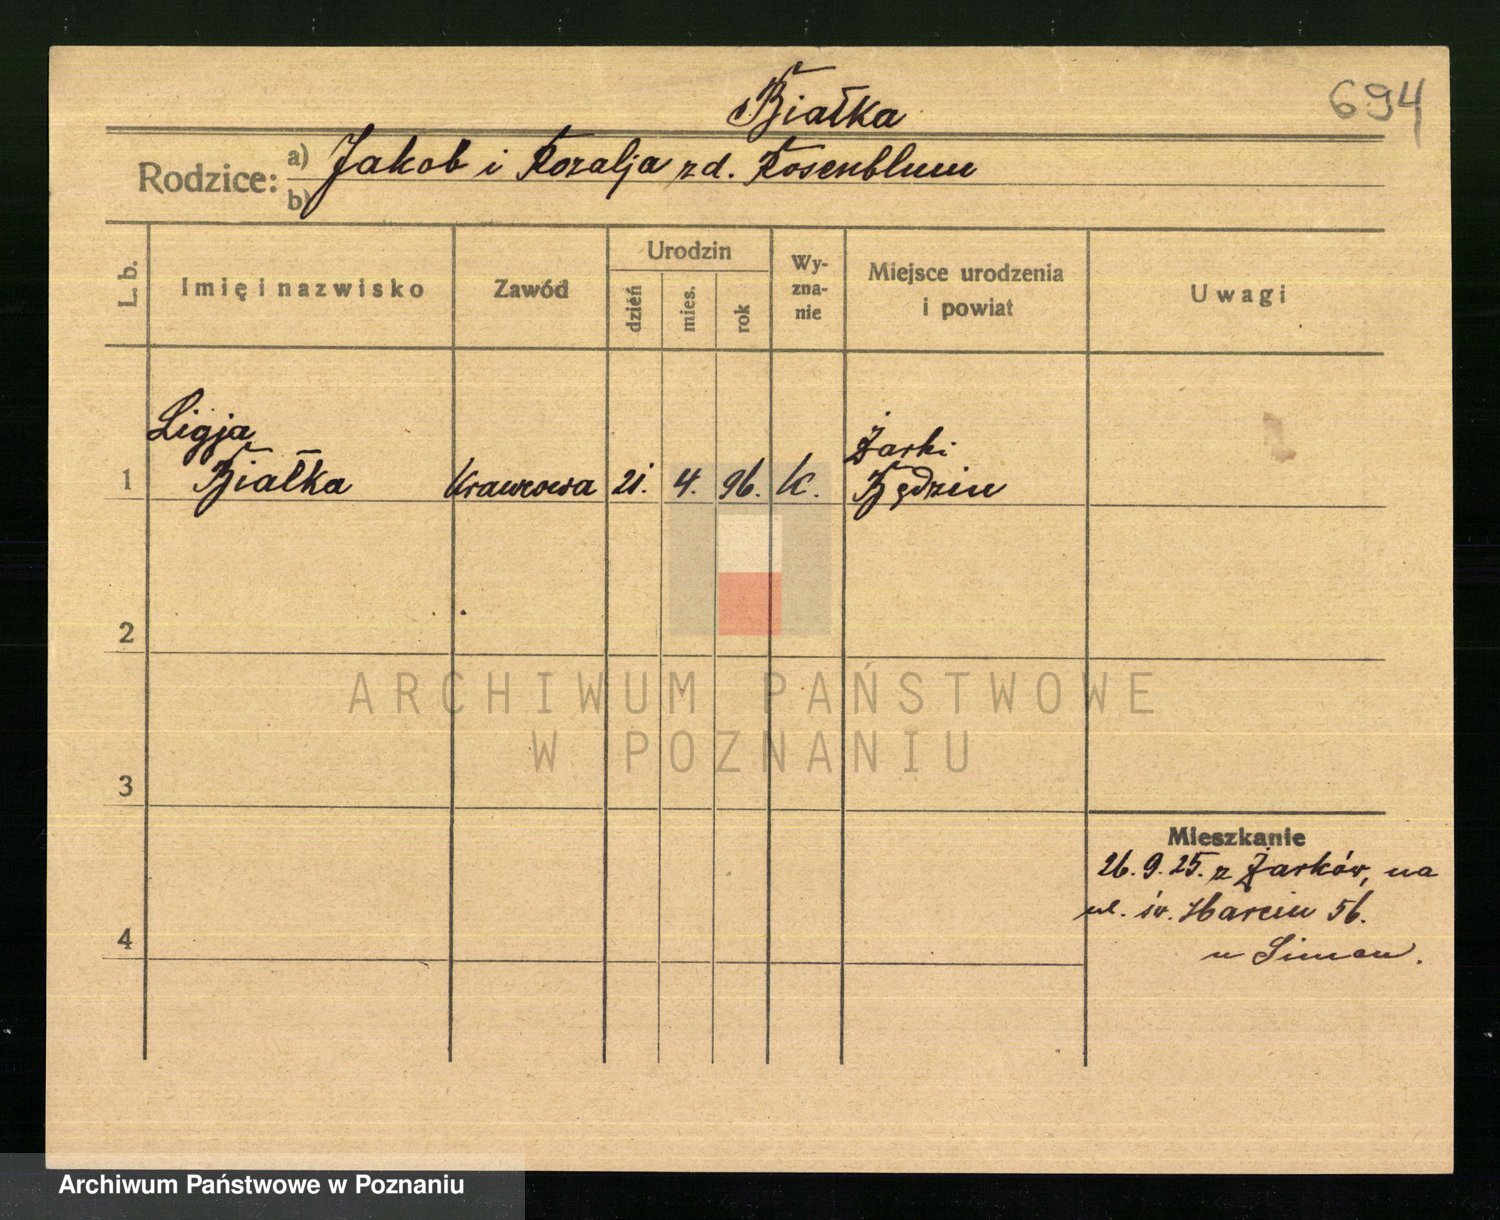 694
Białka
Rodzice: a) Jakob i Rozalja zd. Rosenblum
b)
L. b.
Imię i nazwisko
Zawód
Urodzin
dzień
mies.
rok
Wy-
zna-
nie
Miejsce urodzenia
i powiat
Uwagi
Ligja
1 Białka Krawcowa 21. 4. 96. K. Żarki
Będzin
2
3
4
Mieszkanie
26. 9. 25. z Żarków, na
ul. św. Marcin 56.
u Siman.
ARCHIWUM PAŃSTWOWE
W POZNANIU
Archiwum Państwowe w Poznaniu